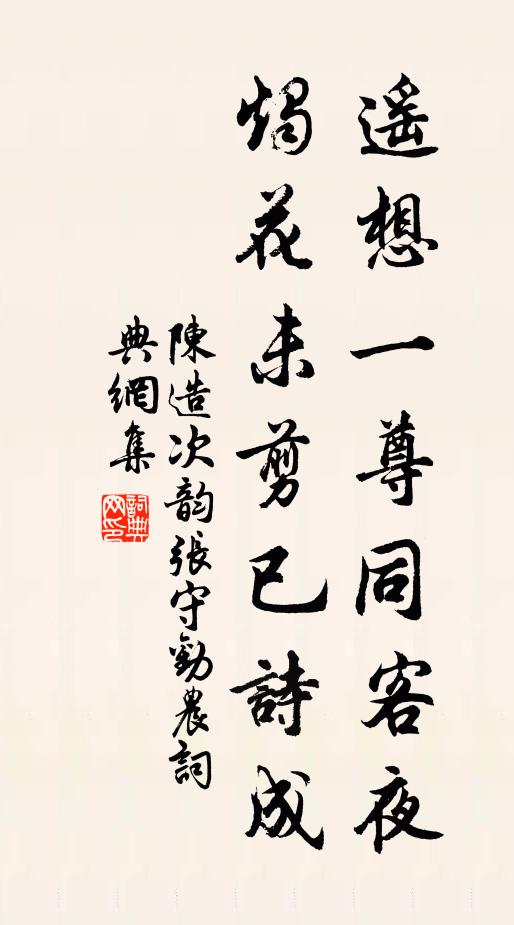 遥想一尊同客夜
燭花未剪已詩成
陳造次韵張守勸農詞
典網集
詞典网印